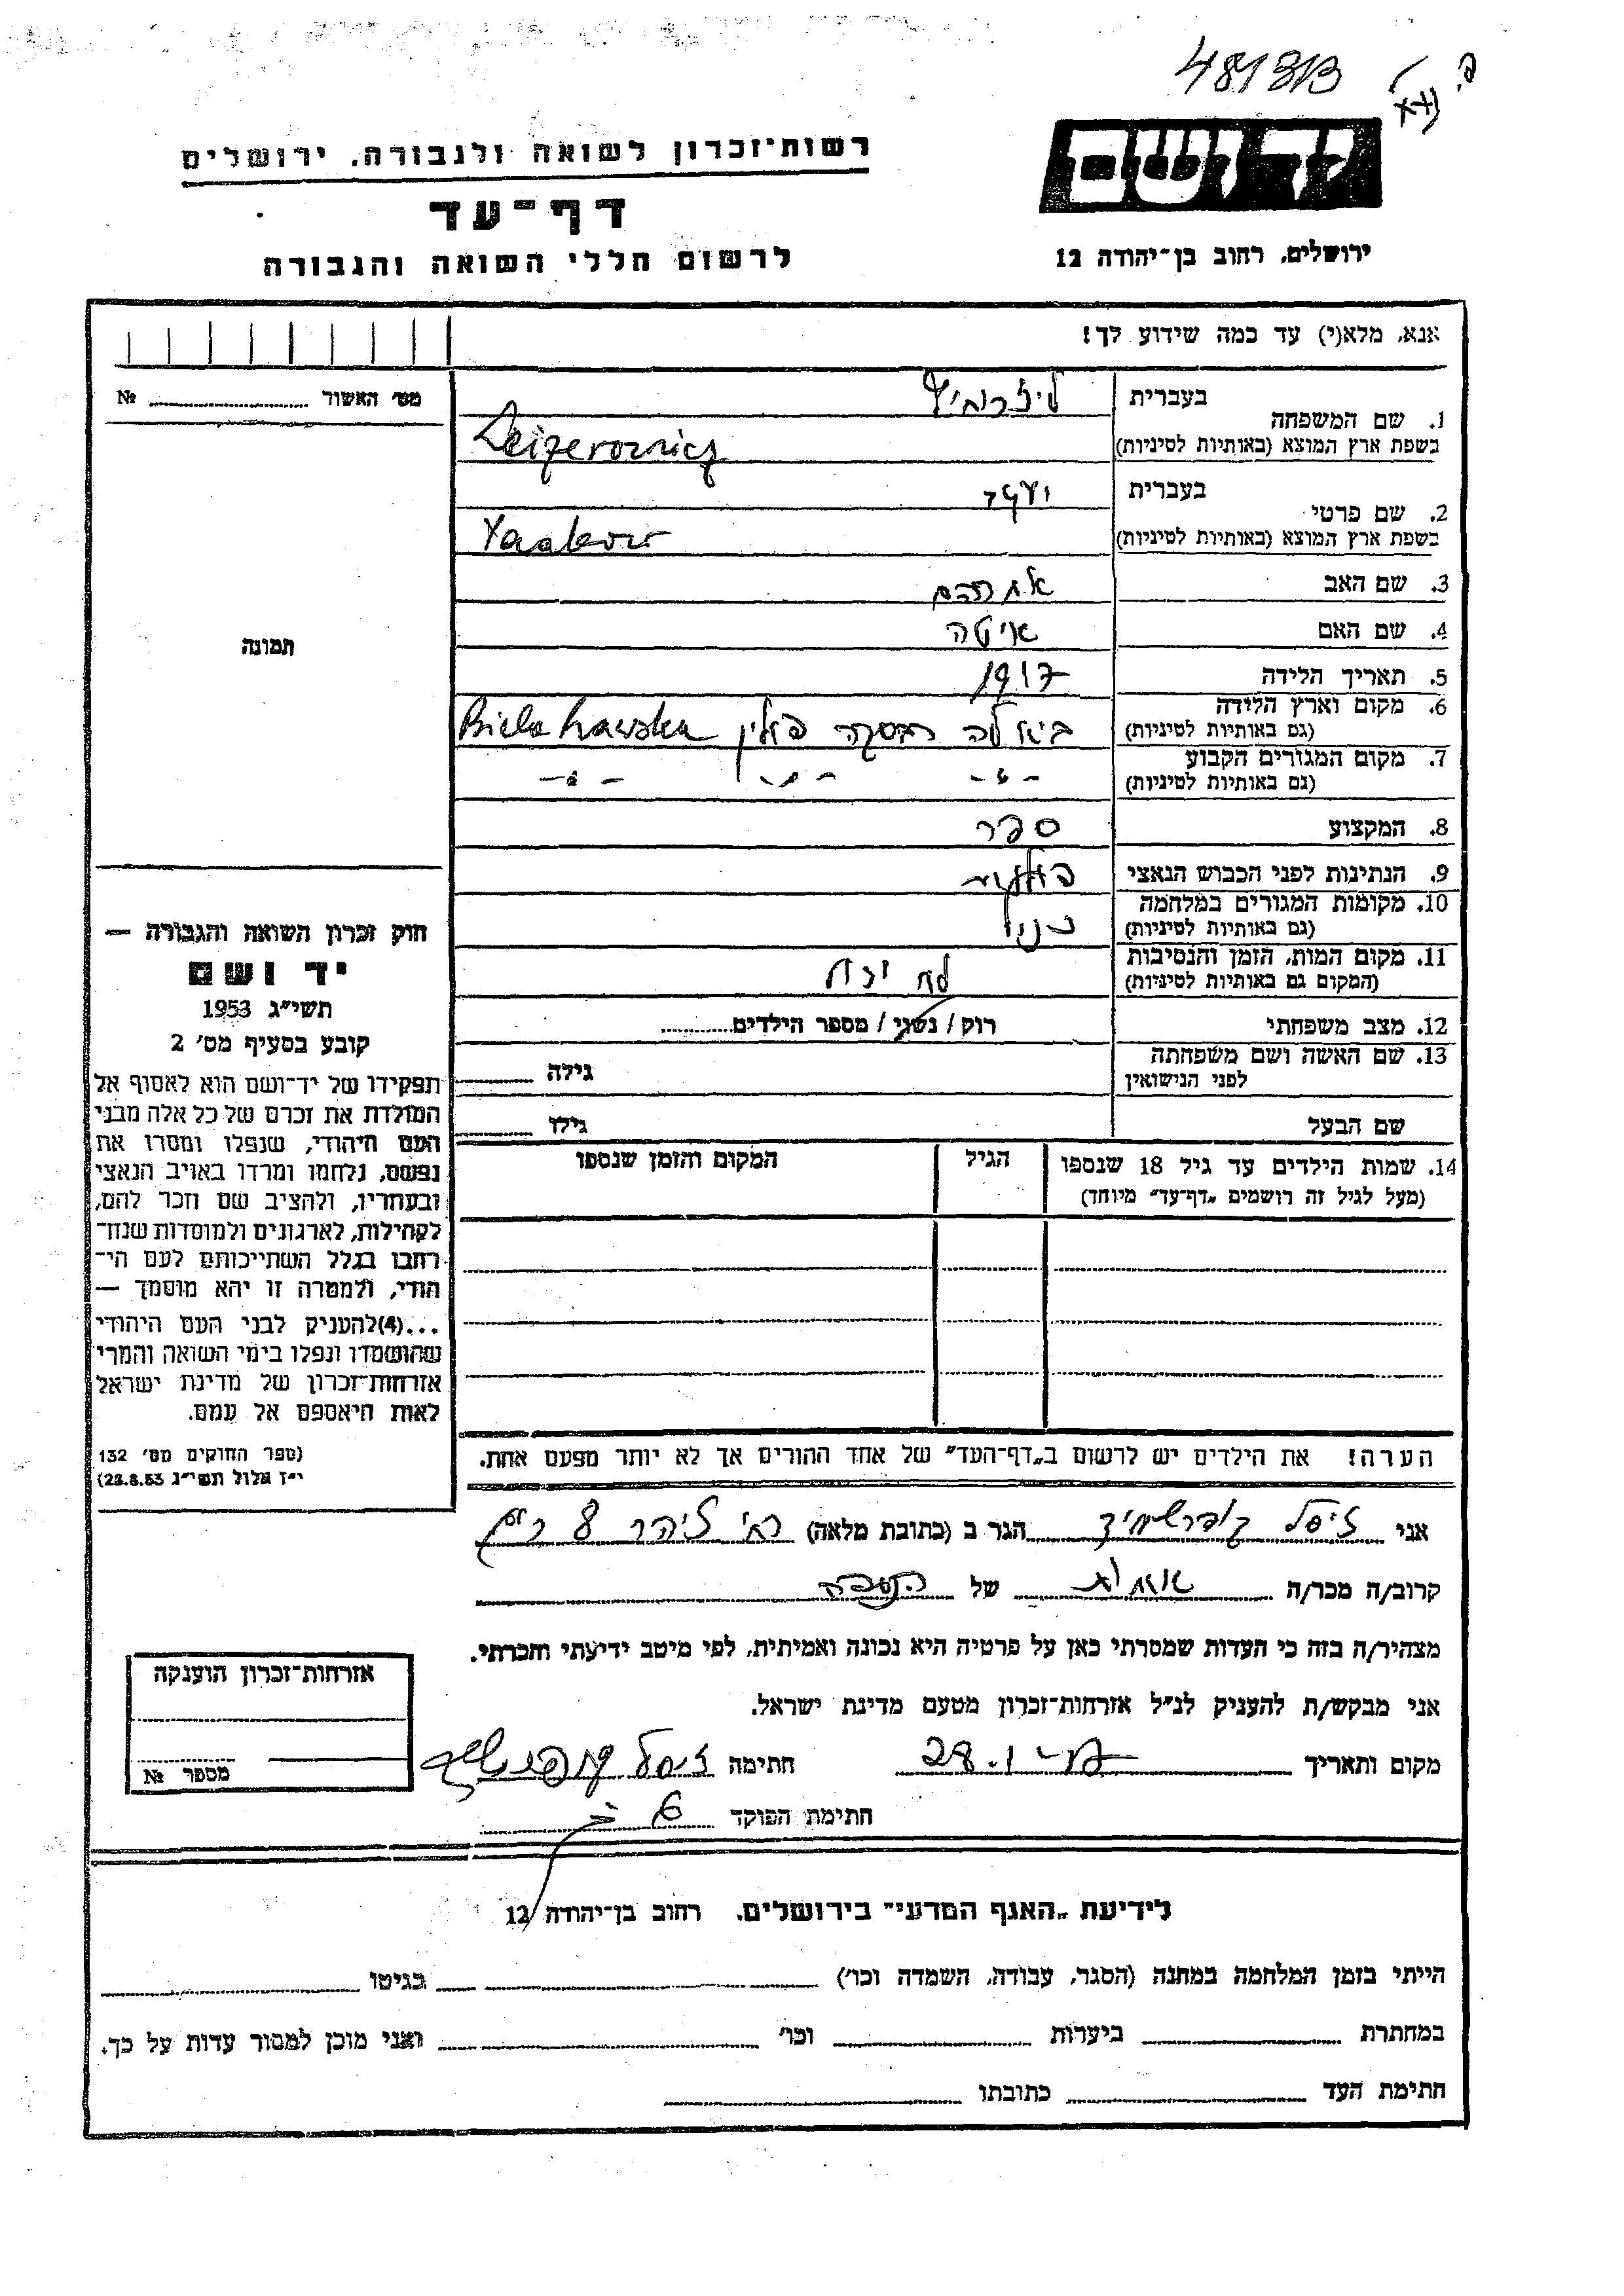 481313
רשות-זכרון לשואה ולגבורה, ירושלים
דף-עד
לרשום חללי השואה והגבורה
יד ושם
ירושלים, רחוב בן-יהודה 12
אנא, מלא(י) עד כמה שידוע לך!
מס׳ האשור № ........
תמונה
1. שם המשפחה
בעברית
בשפת ארץ המוצא (באותיות לטיניות) Leizerowicz
2. שם פרטי
בעברית יעקב
בשפת ארץ המוצא (באותיות לטיניות) Yaakow
3. שם האב אברהם
4. שם האם איטה
5. תאריך הלידה 1917
6. מקום וארץ הלידה
(גם באותיות לטיניות) ביאלה רבסקה פולין Biela Rawska
7. מקום המגורים הקבוע
(גם באותיות לטיניות) - " - - " - - " -
8. המקצוע ספר
9. הנתינות לפני הכבוש הנאצי פולנית
10. מקומות המגורים במלחמה
(גם באותיות לטיניות)
11. מקום המות, הזמן והנסיבות
(המקום גם באותיות לטיניות) לא ידוע
12. מצב משפחתי רוק / נשוי / מספר הילדים........
13. שם האשה ושם משפחתה
לפני הנישואין גילה ........
שם הבעל גילו ........
14. שמות הילדים עד גיל 18 שנספו
(מעל לגיל זה רושמים „דף-עד״ מיוחד)
הגיל
המקום והזמן שנספו
חוק זכרון השואה והגבורה —
יד ושם
תשי״ג 1953
קובע בסעיף מס׳ 2
תפקידו של יד-ושם הוא לאסוף אל
המולדת את זכרם של כל אלה מבני
העם היהודי, שנפלו ומסרו את
נפשם, נלחמו ומרדו באויב הנאצי
ובעוזריו, ולהציב שם וזכר להם,
לקהילות, לארגונים ולמוסדות שנח-
רחבו בגלל השתייכותם לעם הי-
הודי, ולמטרה זו יהא מוסמך —
...(4)להעניק לבני העם היהודי
שהושמדו ונפלו בימי השואה והמרי
אזרחות-זכרון של מדינת ישראל
לאות היאספם אל עמם.
(ספר החוקים מס׳ 132
י״ז אלול תשי״ג 28.8.53)
הערה! את הילדים יש לרשום ב„דף-העד״ של אחד ההורים אך לא יותר מפעם אחת.
אני זיסל הגר ב (כתובת מלאה)
קרוב/ה מכר/ה אחות של הנספה
מצהיר/ה בזה כי העדות שמסרתי כאן על פרטיה היא נכונה ואמיתית, לפי מיטב ידיעתי והכרתי.
אני מבקש/ת להעניק לנ״ל אזרחות-זכרון מטעם מדינת ישראל.
מקום ותאריך 28.1 חתימה זיסל
חתימת הפוקד
אזרחות-זכרון הוענקה
מספר №
לידיעת „האגף המדעי״ בירושלים, רחוב בן-יהודה 12
הייתי בזמן המלחמה במחנה (הסגר, עבודה, השמדה וכו׳) ........ בגיטו ........
במחתרת ........ ביערות ........ וכו׳ ........ ואני מוכן למסור עדות על כך.
חתימת העד ........ כתובתו ........